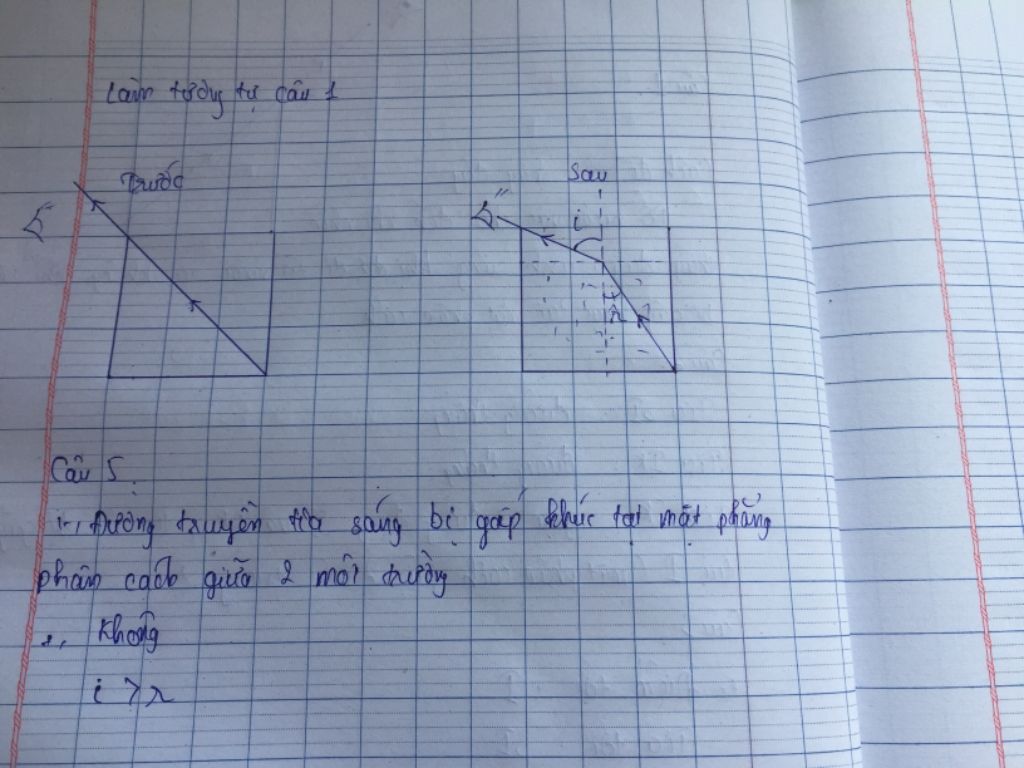 Làm tương tự câu 1
Trước
Sau
i
r
Câu 5
1, Đường truyền tia sáng bị gấp khúc tại mặt phẳng
phân cách giữa 2 môi trường
2, Không
i > r